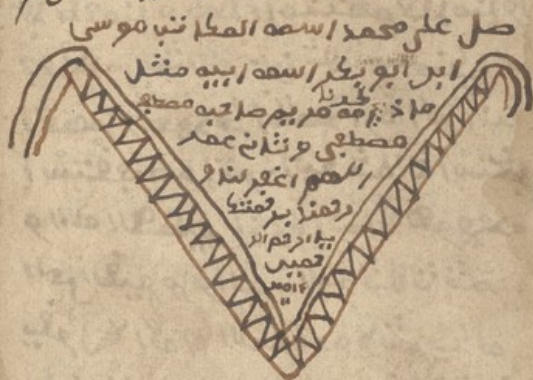 صل على محمد اسمه الكاتب موسى
ابن ابو بكر اسمه ابيه منثل
ماذ امه مريم صاحبه مصطفى
مصطفى وثاني عمر
اللهم اغفر لنا و
رحمتنا برحمتك
يا ارحم الر
حمين
امين